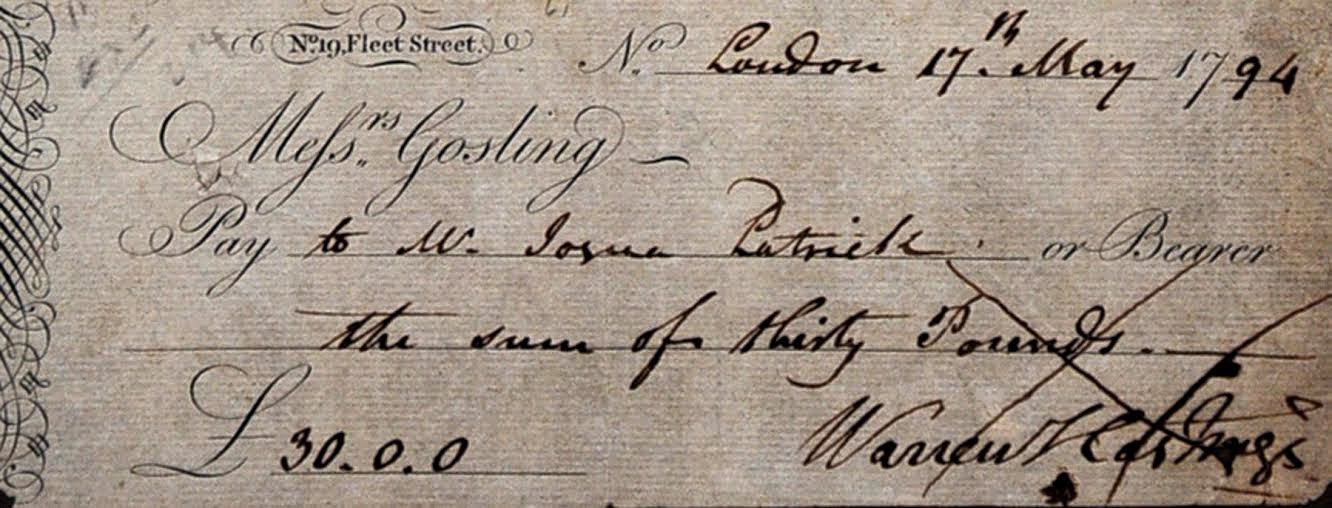 Nº. 19, Fleet Street.
Nº London 17.th May 1794
Messrs Gosling
Pay to Mr. Josua Patrick or Bearer
the sum of thirty Pounds.
£ 30.0.0
Warren Hastings